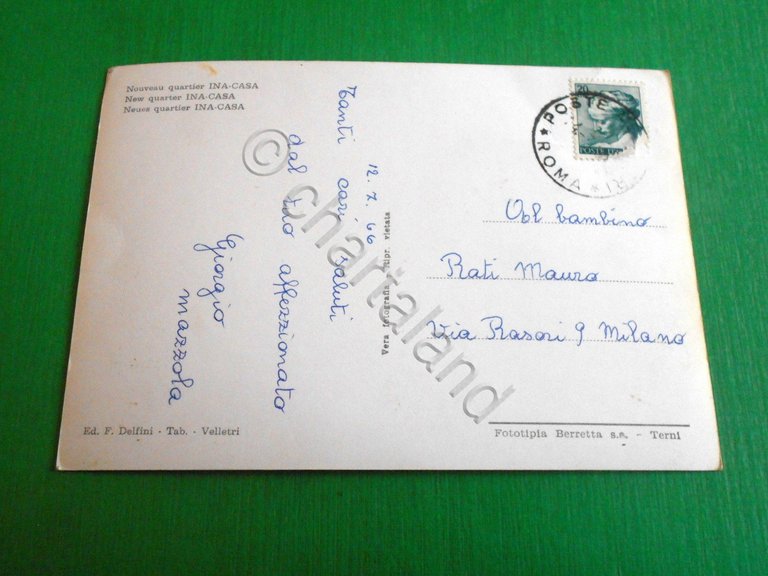 Nouveau quartier INA-CASA
New quarter INA-CASA
Neues quartier INA-CASA
12.7.66
Tanti cari saluti
dal tuo affezzionato
Giorgio
mazzola
Vera fotografia - Ripr. vietata
20
POSTE
POSTE ROMA
Al bambino
Rati Mauro
Via Rasori 9 Milano
Ed. F. Delfini - Tab. - Velletri
Fototipia Berretta s.a. - Terni
© chartaland